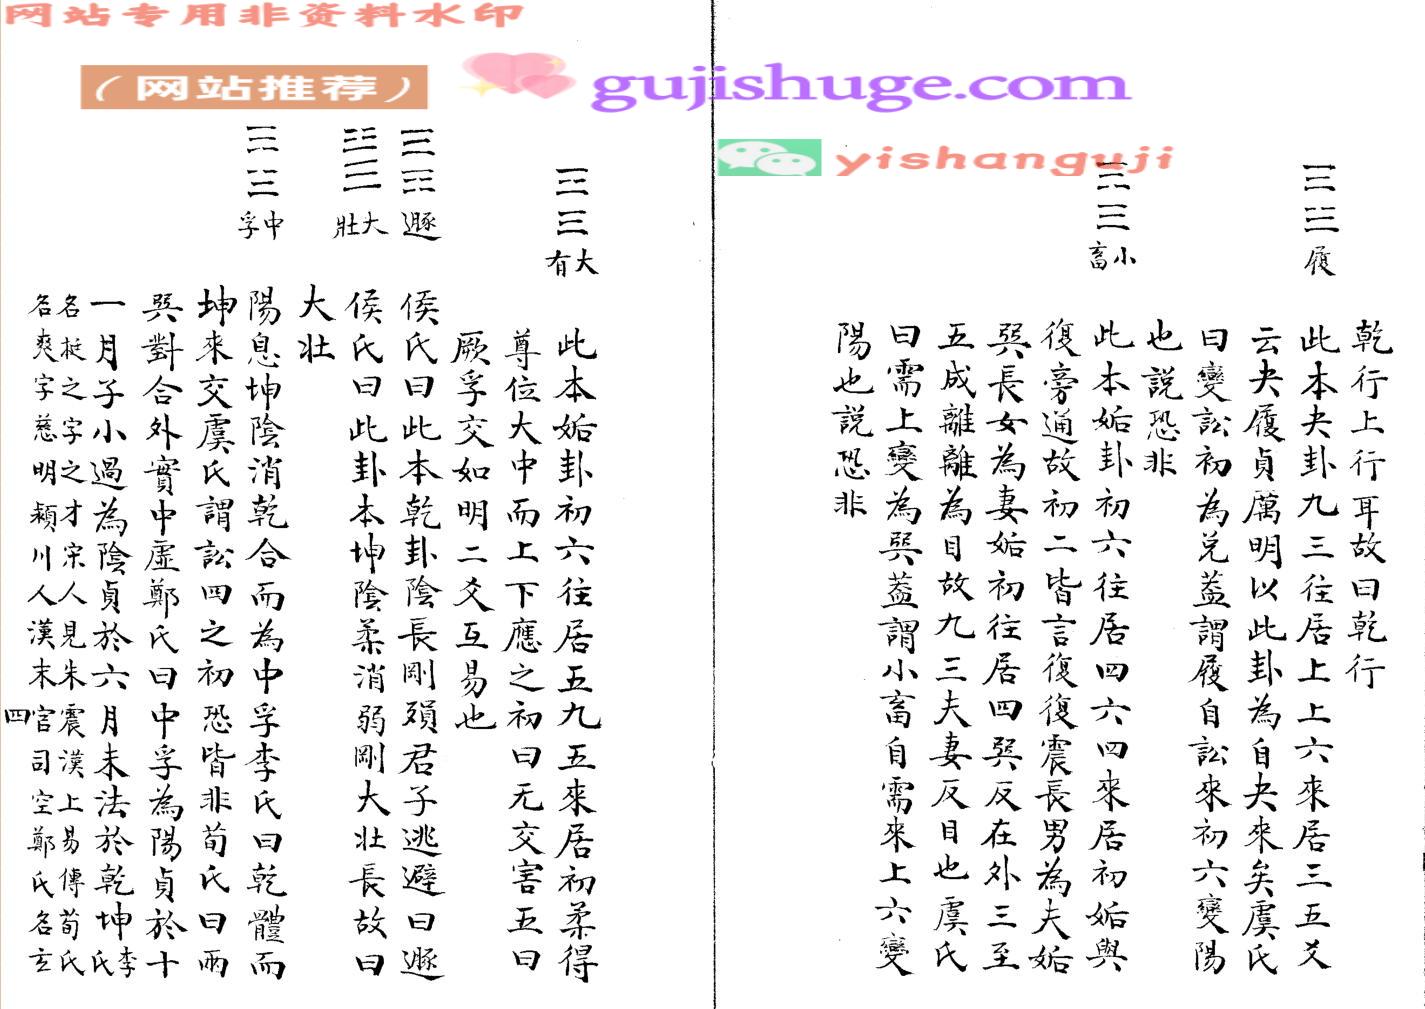 网站专用非资料水印
（网站推荐）
gujishuge.com
yishanguji
乾行上行耳故曰乾行
履
此本夬卦九三往居上上六來居三五爻
云夬履貞厲明以此卦為自夬來矣虞氏
曰變訟初為兌蓋謂履自訟來初六變陽
也説恐非
小畜
此本姤卦初六往居四六四來居初姤與
復旁通故初二皆言復復震長男為夫姤
巽長女為妻姤初往居四巽反在外三至
五成離離為目故九三夫妻反目也虞氏
曰需上變為巽蓋謂小畜自需來上六變
陽也説恐非
大有
此本姤卦初六往居五九五來居初柔得
尊位大中而上下應之初曰无交害五曰
厥孚交如明二爻互易也
遯
侯氏曰此本乾卦陰長剛殞君子逃避曰遯
大壯
侯氏曰此卦本坤陰柔消弱剛大壯長故曰
大壯
中孚
陽息坤陰消乾合而為中孚李氏曰乾體而
坤來交虞氏謂訟四之初恐皆非荀氏曰兩
巽對合外實中虛鄭氏曰中孚為陽貞於十
一月子小過為陰貞於六月未法於乾坤李氏
名挺之字之才宋人見朱震漢上易傳荀氏
名爽字慈明潁川人漢末官司空鄭氏名玄
四